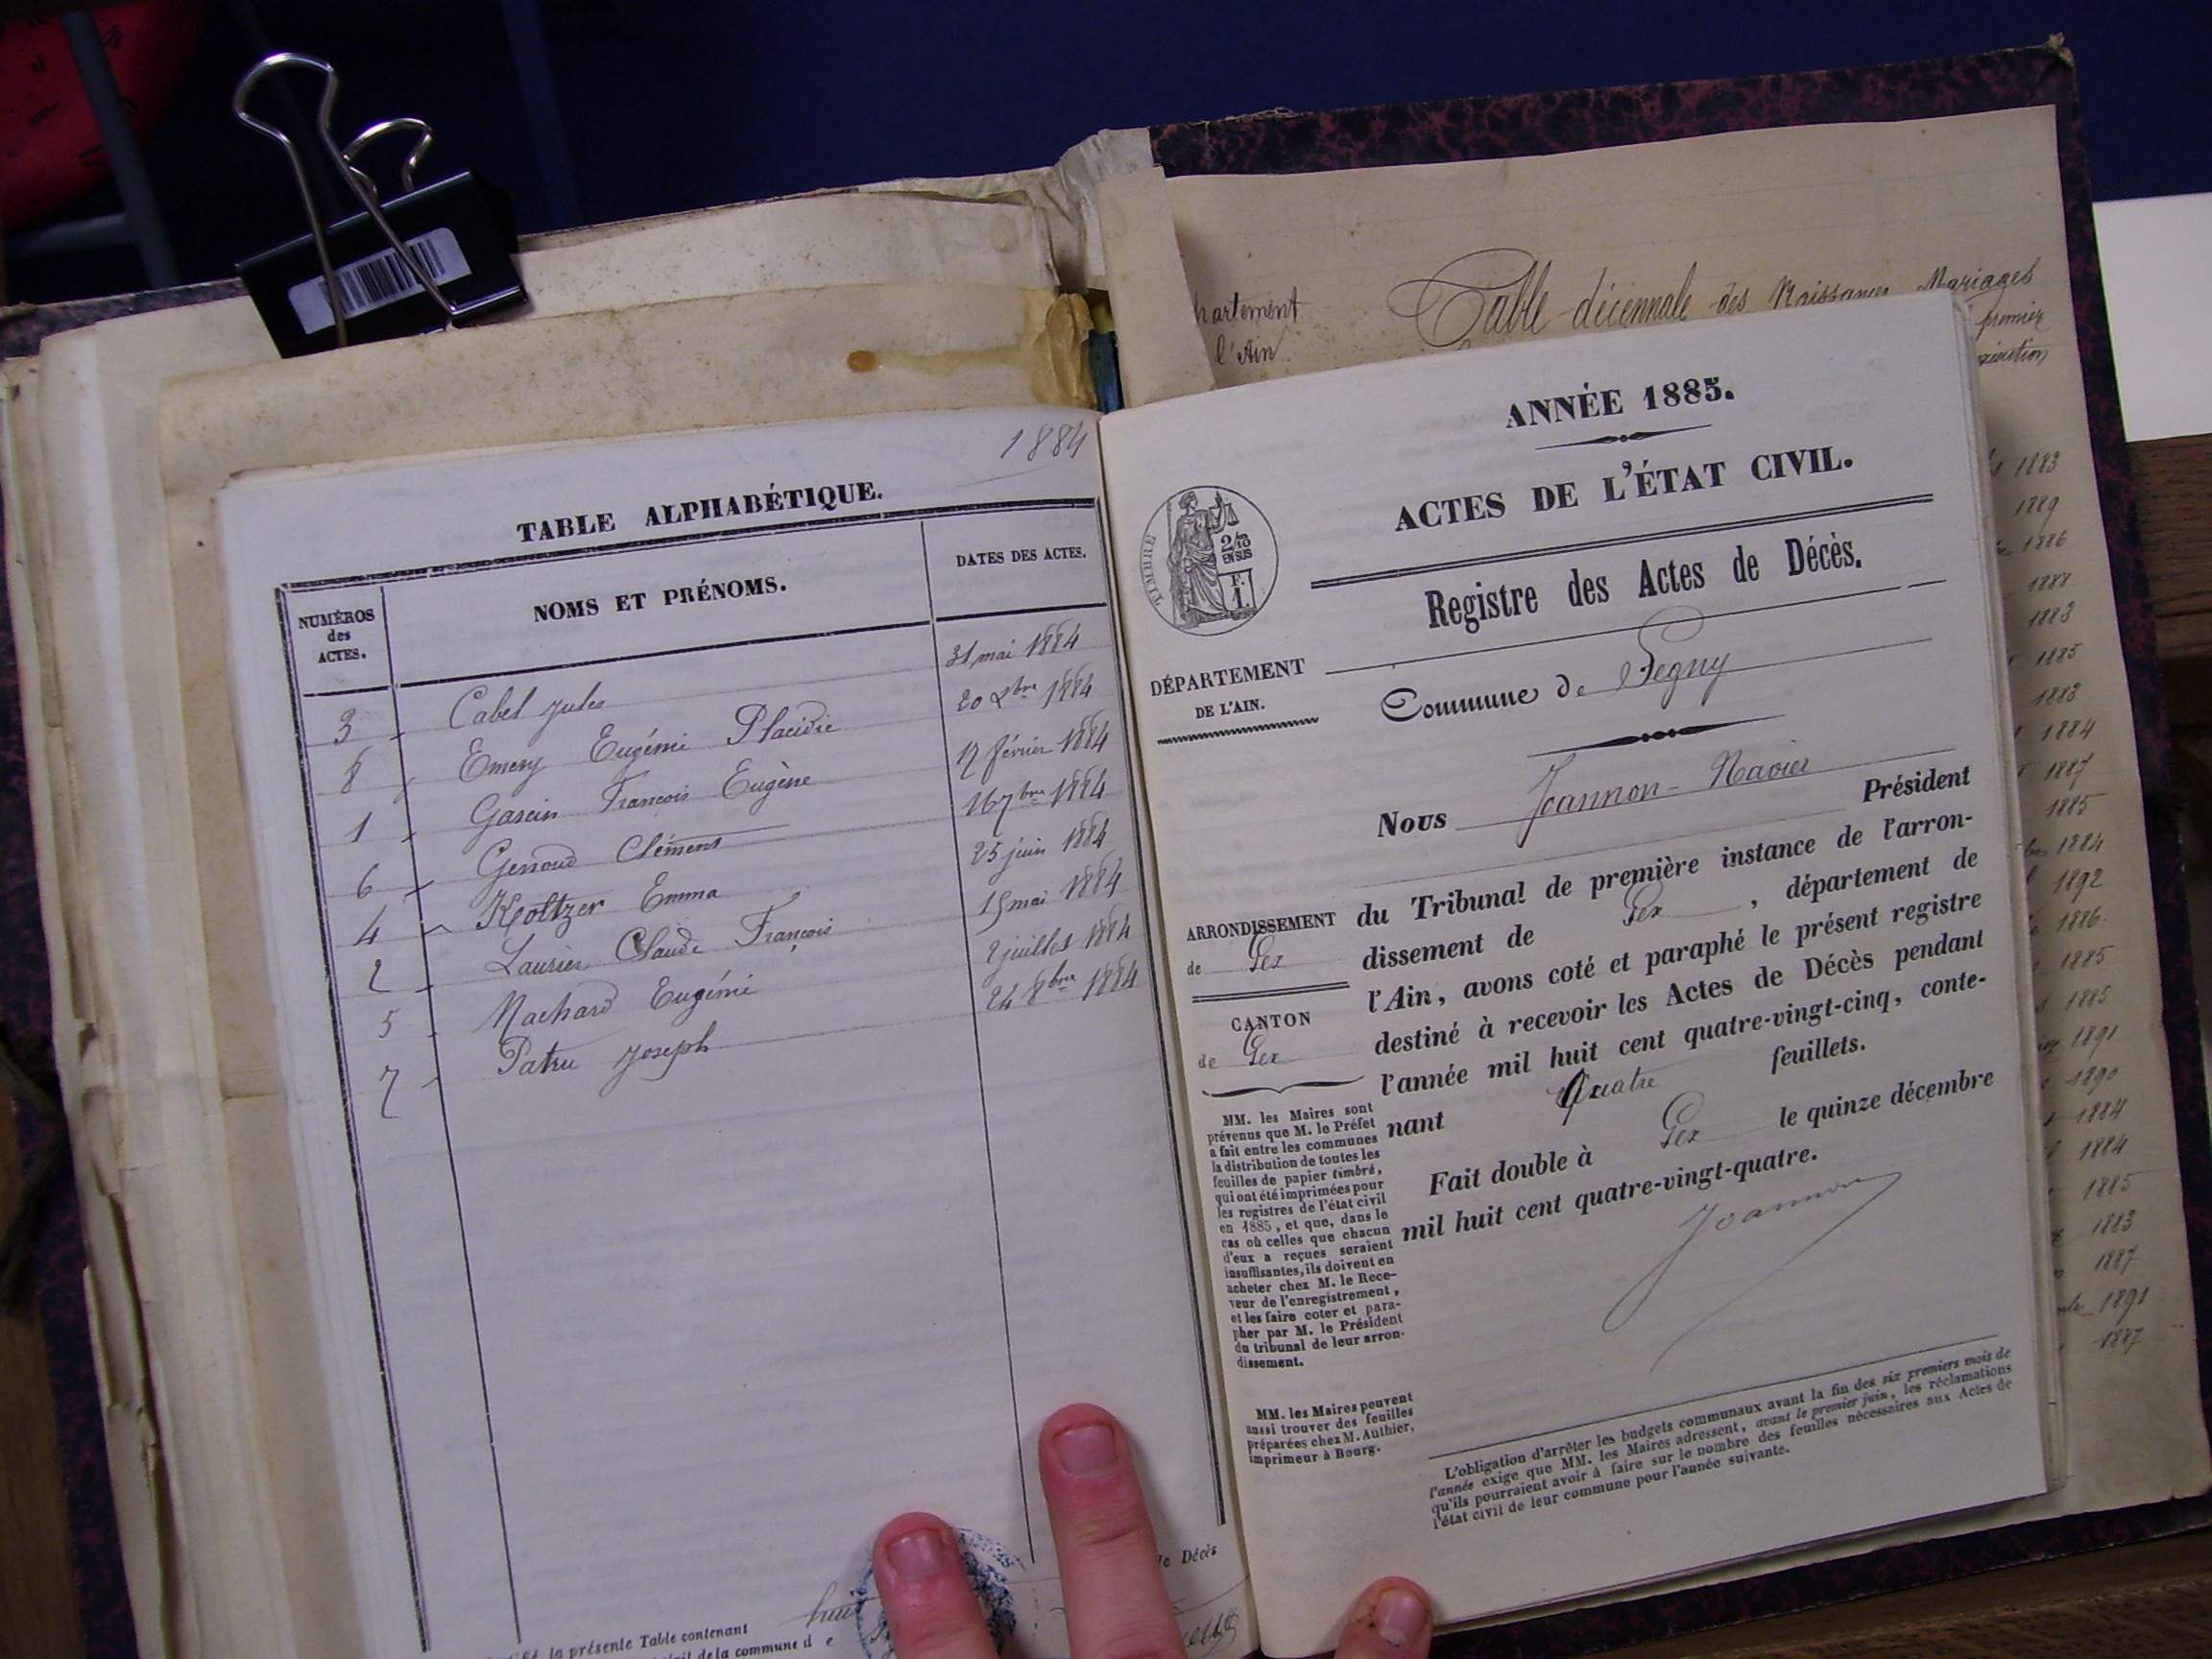 1884
TABLE ALPHABÉTIQUE.
NUMÉROS des ACTES. NOMS ET PRÉNOMS. DATES DES ACTES.
3 Cabel Jules 31 mai 1884
8 Emery Eugénie Placidie 20 Xbre 1884
1 Garcin François Eugène 12 février 1884
6 Genoud Clément 16 7bre 1884
4 Koltzer Emma 25 juin 1884
2 Laurier Claude François 15 mai 1884
5 Machard Eugénie 2 juillet 1884
7 Patru Joseph 24 8bre 1884
la présente Table contenant huit
de Décès
de la commune de
Département
l'Ain
Table décennale des Naissances Mariages
premier
ANNÉE 1885.
ACTES DE L'ÉTAT CIVIL.
Registre des Actes de Décès.
TIMBRE
2/10
EN SUS
F.
1.
DÉPARTEMENT
DE L'AIN.
Commune de Segny
Nous Joannon-Navier Président
du Tribunal de première instance de l'arron-
dissement de Gex, département de
l'Ain, avons coté et paraphé le présent registre
destiné à recevoir les Actes de Décès pendant
l'année mil huit cent quatre-vingt-cinq, conte-
nant Quatre feuillets.
Fait double à Gex le quinze décembre
mil huit cent quatre-vingt-quatre.
Joannon
ARRONDISSEMENT
de Gex
CANTON
de Gex
MM. les Maires sont
prévenus que M. le Préfet
a fait entre les communes
la distribution de toutes les
feuilles de papier timbré,
qui ont été imprimées pour
les registres de l'état civil
en 1885, et que, dans le
cas où celles que chacun
d'eux a reçues seraient
insuffisantes, ils doivent en
acheter chez M. le Rece-
veur de l'enregistrement,
et les faire coter et para-
pher par M. le Président
du tribunal de leur arron-
dissement.
MM. les Maires peuvent
aussi trouver des feuilles
préparées chez M. Authier,
imprimeur à Bourg.
L'obligation d'arrêter les budgets communaux avant la fin des six premiers mois de
l'année exige que MM. les Maires adressent, avant le premier juin, les réclamations
qu'ils pourraient avoir à faire sur le nombre des feuilles nécessaires aux Actes de
l'état civil de leur commune pour l'année suivante.
1883
1889
1886
1888
1883
1885
1883
1884
1887
1885
1884
1892
1886
1885
1885
1891
1890
1884
1884
1885
1883
1887
1891
1887